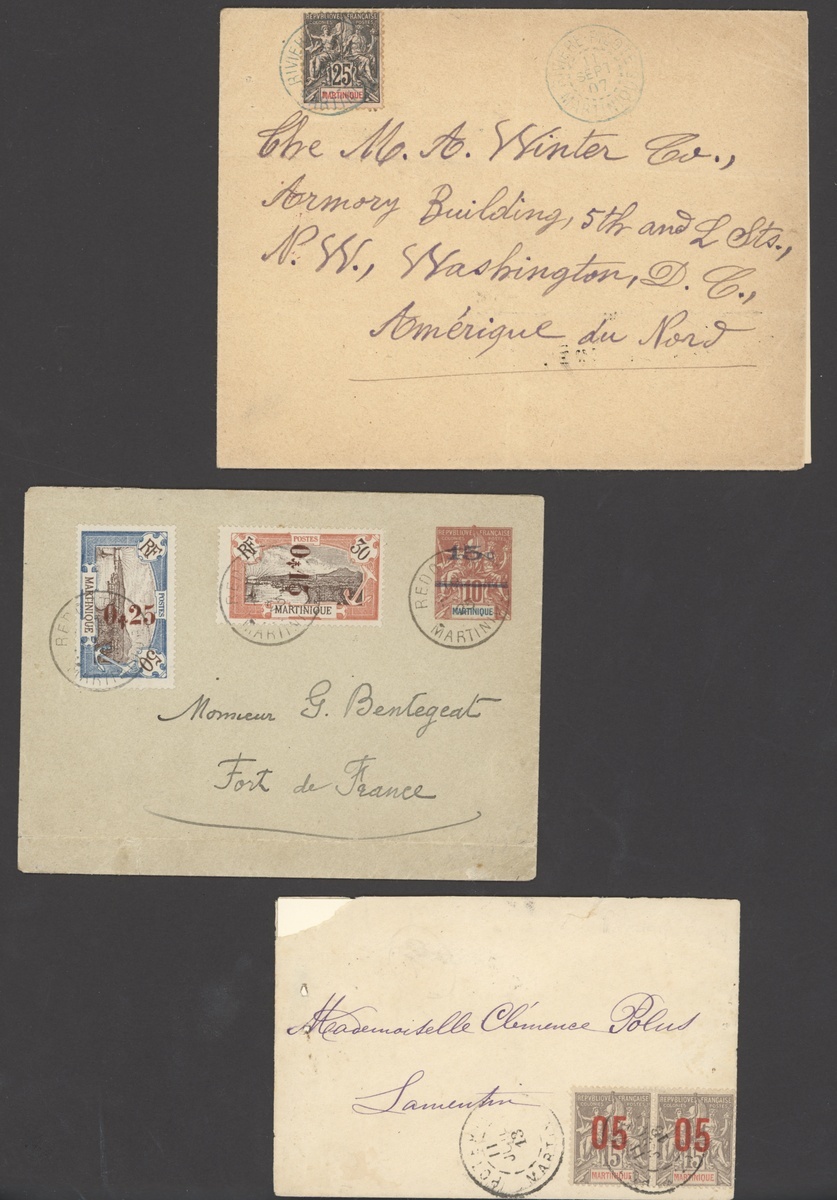 RÉPUBLIQUE FRANÇAISE
COLONIES POSTES
25
MARTINIQUE
SEPT
07
MARTINIQUE
The M. A. Winter Co.,
Armory Building, 5th and L Sts.,
N. W., Washington, D. C.,
Amérique du Nord
RF
POSTES
MARTINIQUE
0,25
50
RF
POSTES
30
0,15
MARTINIQUE
RÉPUBLIQUE FRANÇAISE
15c
10
MARTINIQUE
Monsieur G. Bentegeat
Fort de France
Mademoiselle Clémence Polus
Lamentin
RÉPUBLIQUE FRANÇAISE
COLONIES POSTES
05
15
MARTINIQUE
RÉPUBLIQUE FRANÇAISE
COLONIES POSTES
05
15
MARTINIQUE
11
13